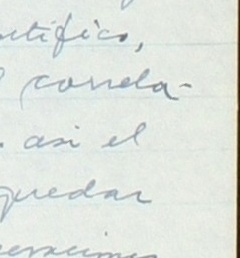 ntífico,
correla-
así el
quedar